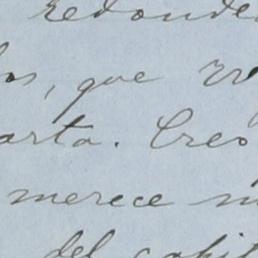 redonde
os, que
arta. Creo
merece
del capit